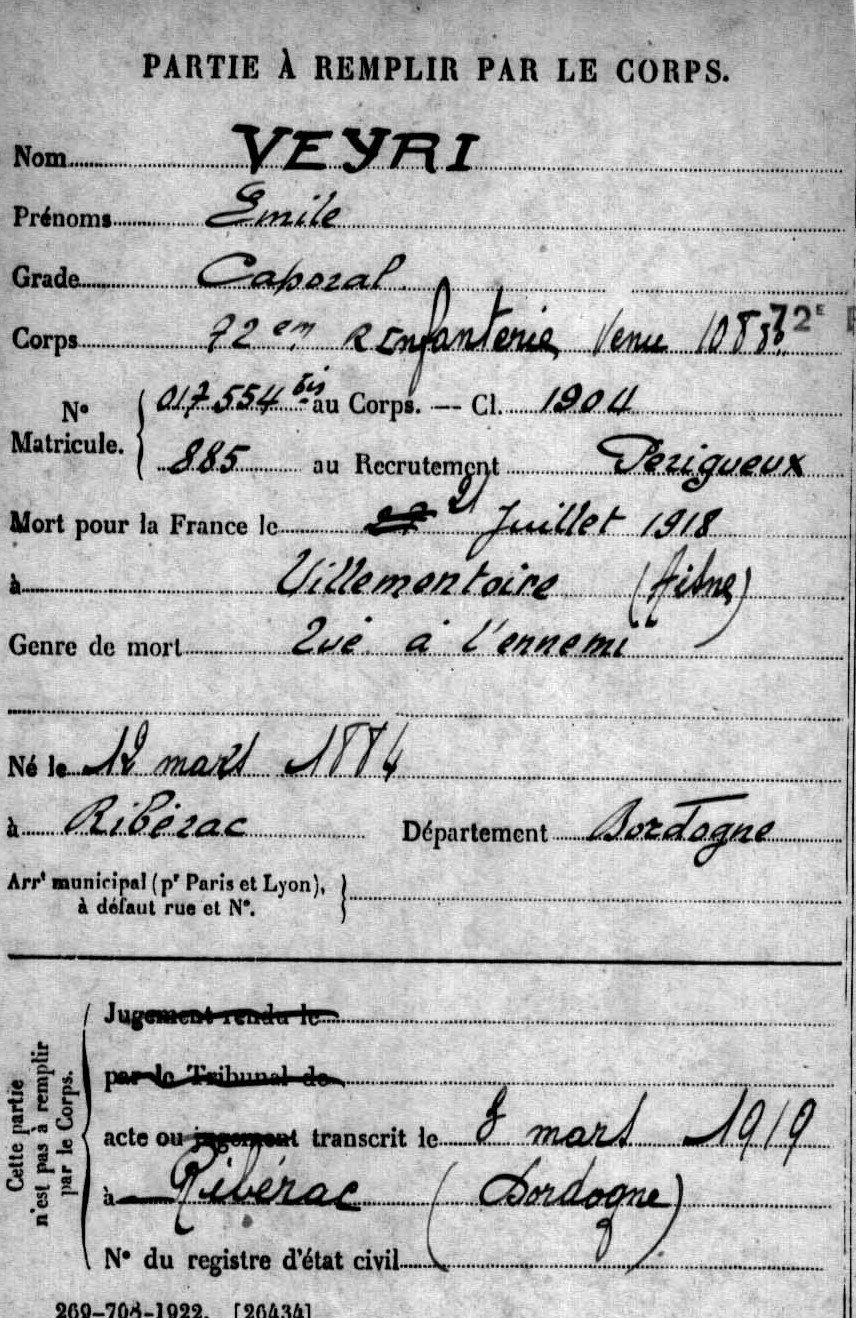 PARTIE À REMPLIR PAR LE CORPS.
Nom VEYRI
Prénoms Emile
Grade Caporal
Corps 72 em R Infanterie Venu 108e 72E
N° Matricule. 017554 bis au Corps. — Cl. 1904
885 au Recrutement Perigueux
Mort pour la France le 21 Juillet 1918
à Villemontoire (Aisne)
Genre de mort Tué à l'ennemi
Né le 12 mars 1884
à Ribérac Département Dordogne
Arrt municipal (pr Paris et Lyon),
à défaut rue et N°.
Cette partie
n'est pas à remplir
par le Corps.
Jugement rendu le
par le Tribunal de
acte ou jugement transcrit le 8 mars 1919
à Ribérac (Dordogne)
N° du registre d'état civil
269-708-1922. [26434]